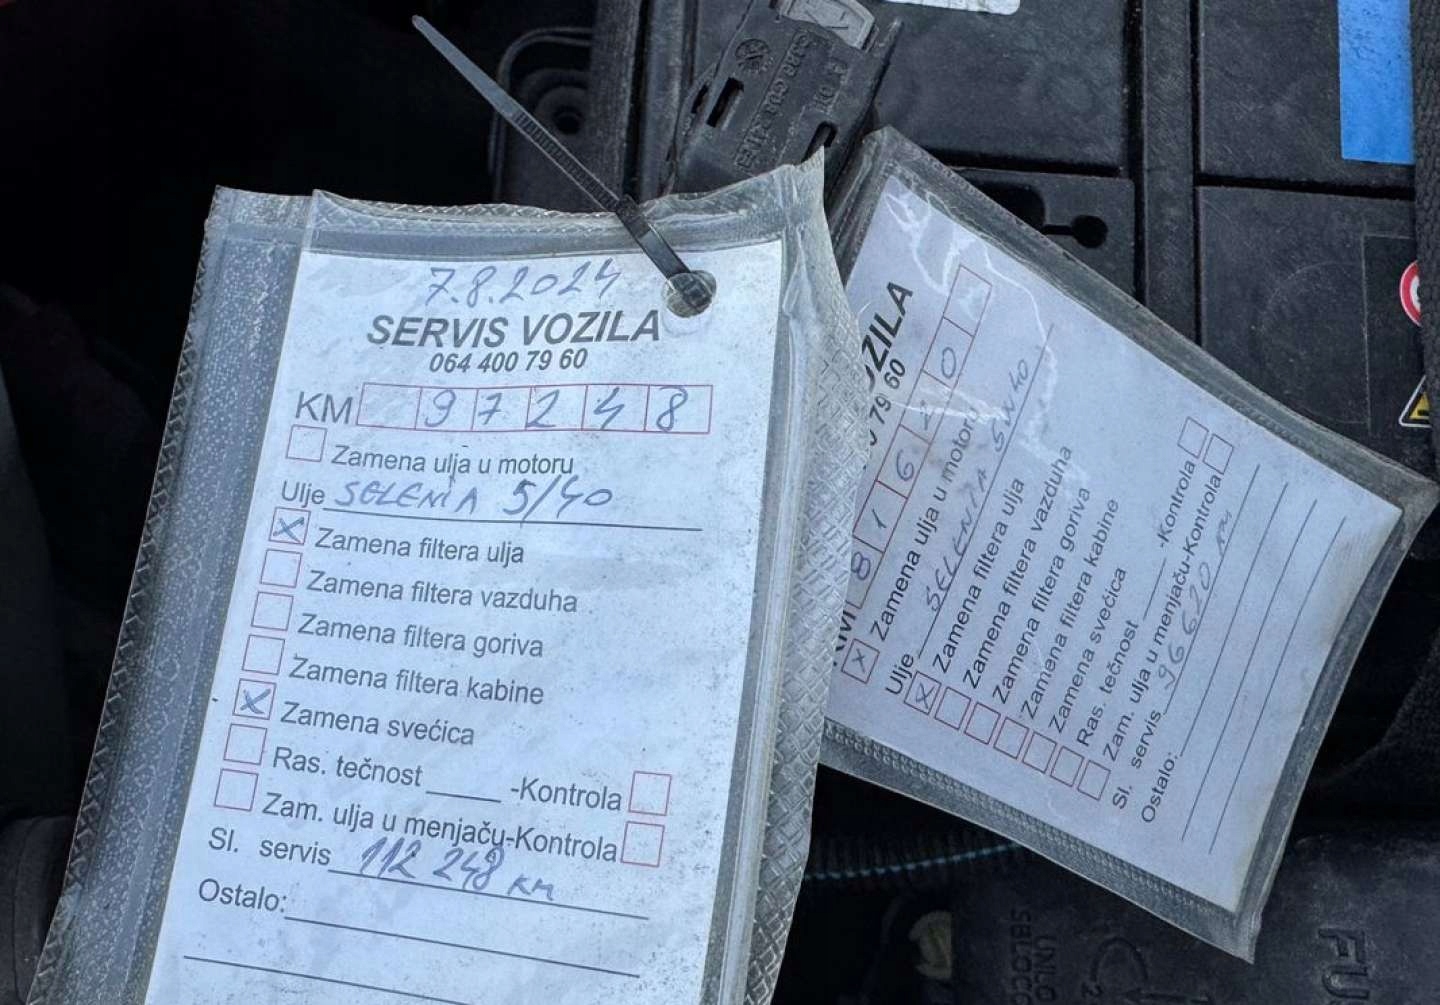 7.8.2024
SERVIS VOZILA
064 400 79 60
KM 97248
Zamena ulja u motoru
Ulje SELENIA 5/40
Zamena filtera ulja
Zamena filtera vazduha
Zamena filtera goriva
Zamena filtera kabine
Zamena svećica
Ras. tečnost -Kontrola
Zam. ulja u menjaču-Kontrola
Sl. servis 112 248 км
Ostalo:
79 60
81620
Zamena ulja u motoru
Ulje SELENIA 5W40
Zamena filtera ulja
Zamena filtera vazduha
Zamena filtera goriva
Zamena filtera kabine
Zamena svećica
Ras. tečnost -Kontrola
Zam. ulja u menjaču-Kontrola
Sl. servis 96620
Ostalo: